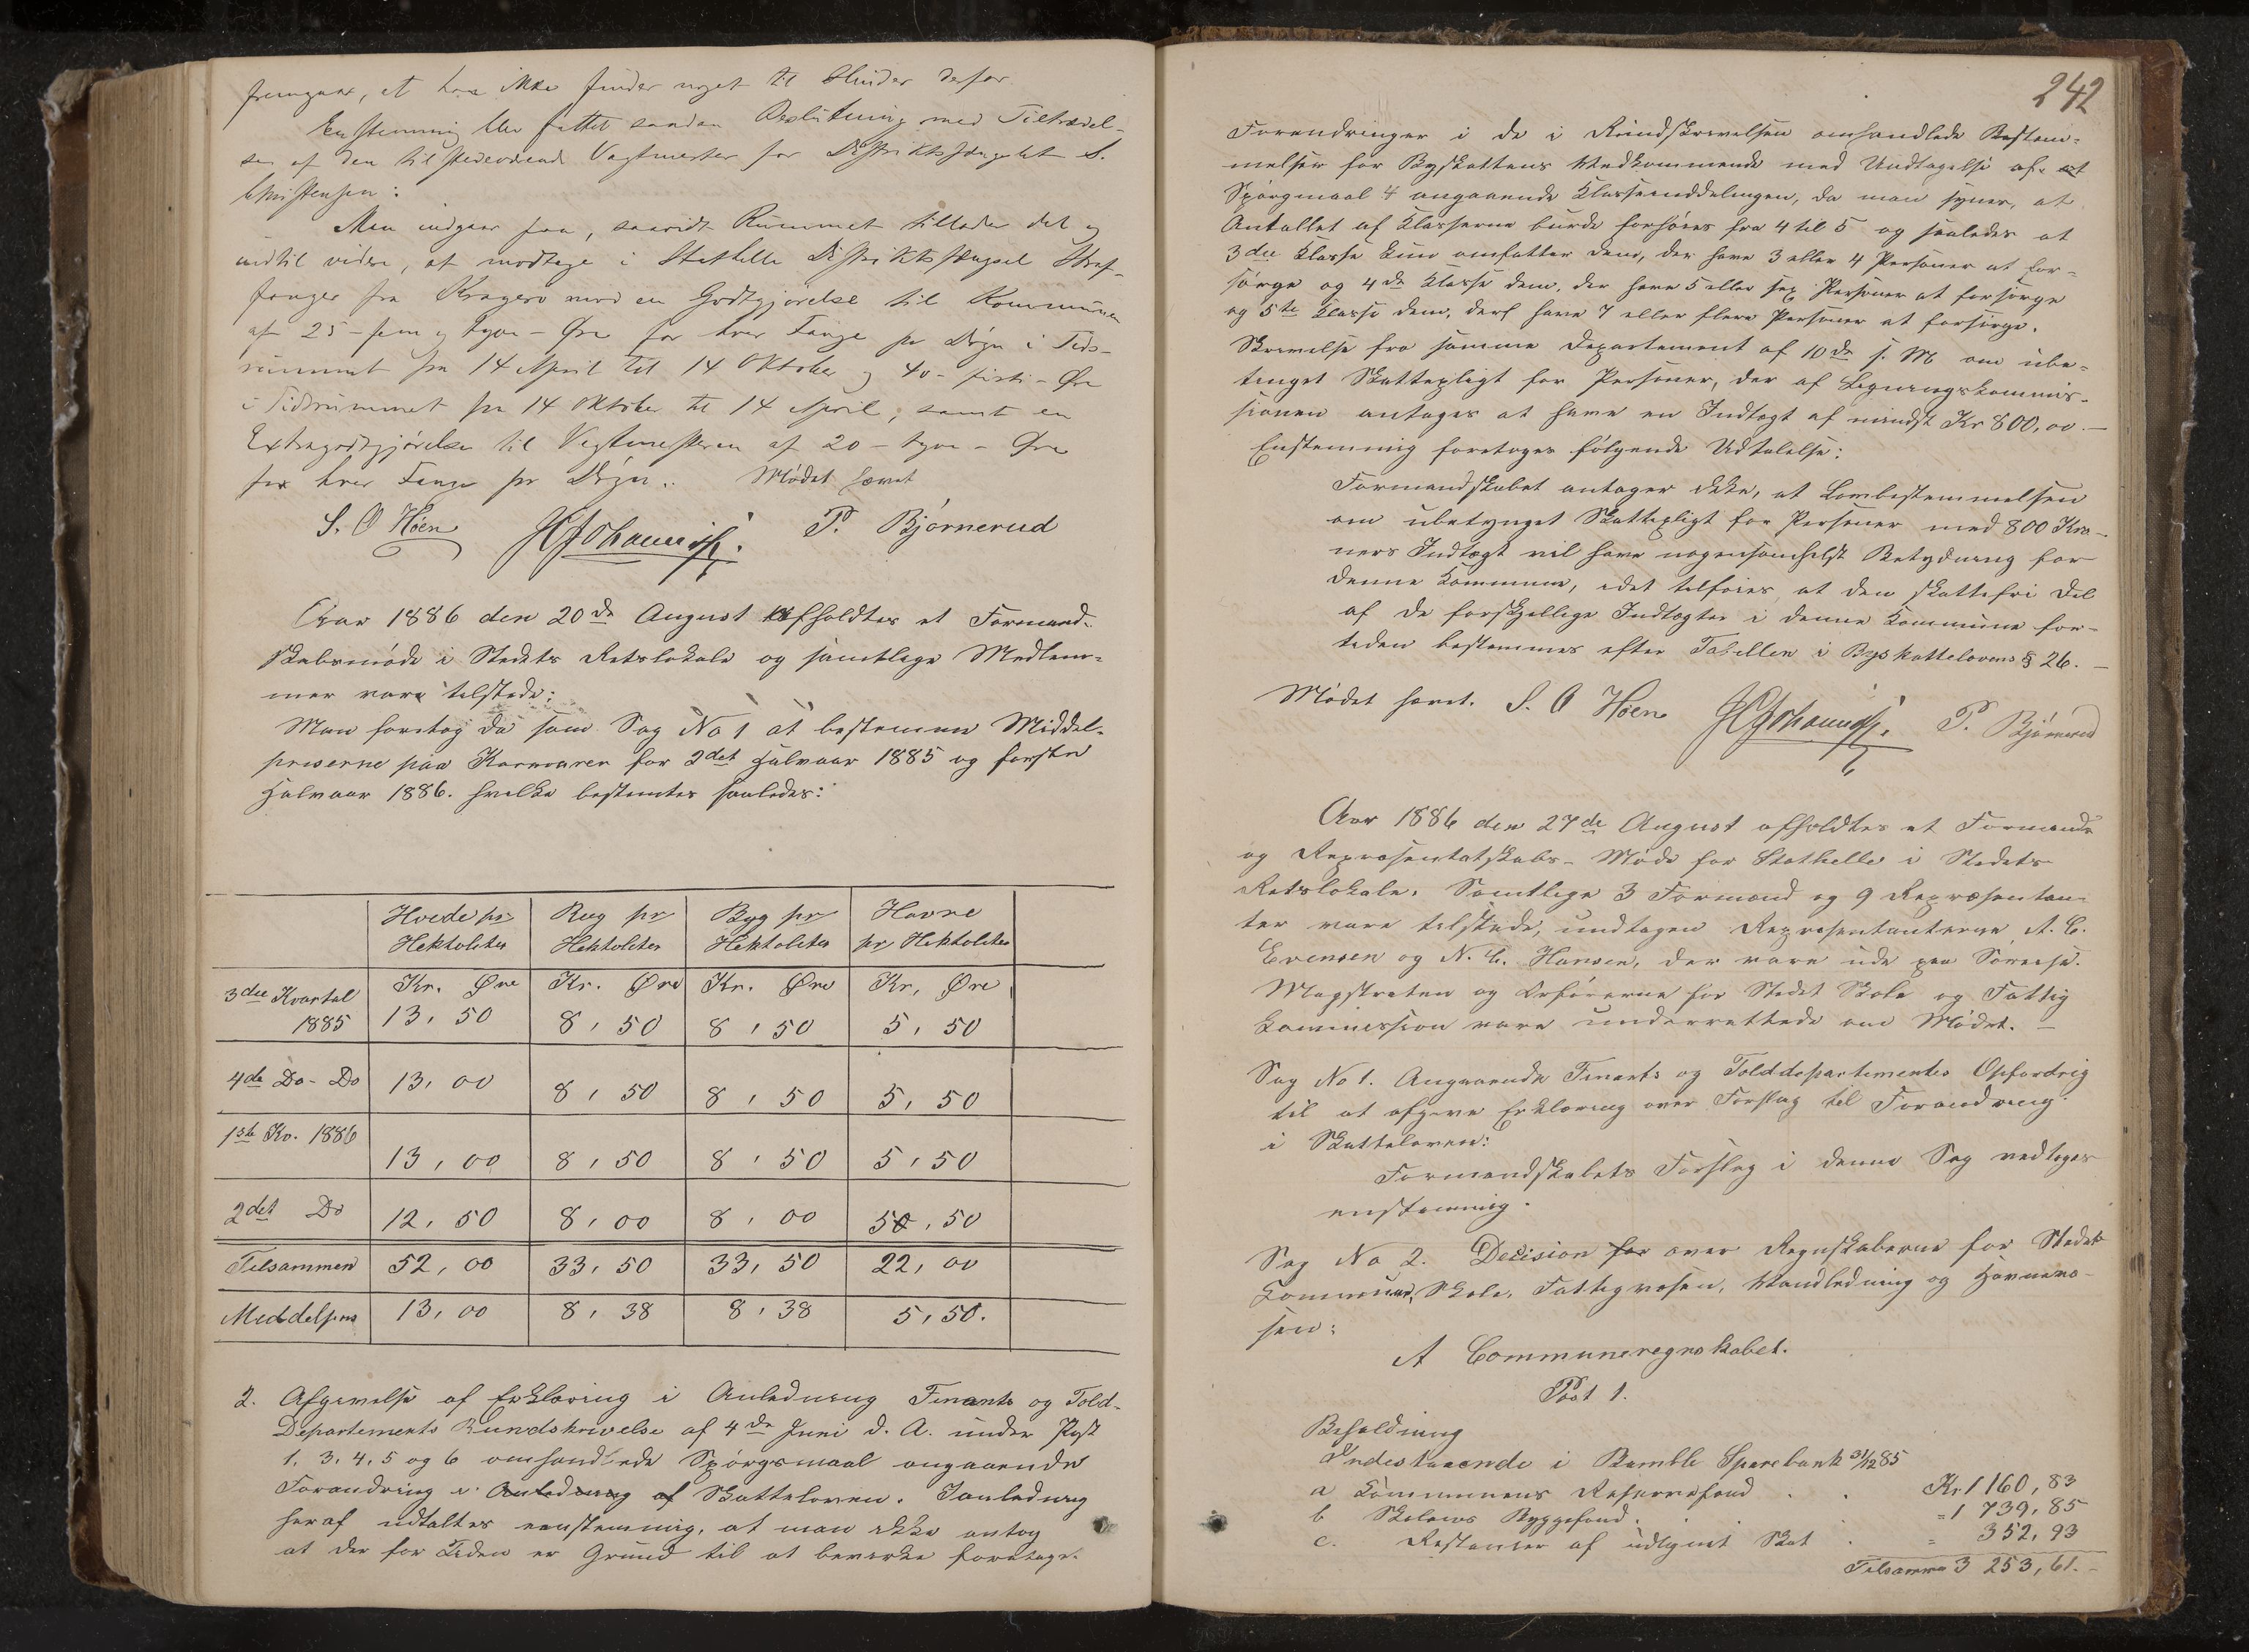 fremgaar, at han ikke finder noget til Hinder derfor
Enstemmig blev fattet saadan Beslutning med Tiltrædel-
se af den tilstedeværende Vagtmester for Distriktsfængslet S.
Christensen:
Man indgaar paa, saavidt Rummet tillader det og
indtil videre, at modtage i Stathelle Distriktsfængsel Straf-
fanger fra Kragerø mod en Godtgjörelse til Kommunen
af 25 - fem og tyve - Øre for hver Fange pr Døgn i Tids-
rummet fra 14 April til 14 Oktober og 40 - firti - Øre
i Tidsrummet fra 14 Oktober til 14 April, samt en
Extragodtgjörelse til Vagtmesteren af 20 - tyve - Øre
for hver Fange pr Døgn. Mödet hævet
S. O Höen H Johannis. P. Björnerud
Aar 1886 den 20de August afholdtes et Formand-
skabsmöde i Stedets Retslokale og samtlige Medlem-
mer vare tilstede:
Man foretog da som Sag No 1 at bestemme Middel-
priserne paa Kornvarer for 2det Halvaar 1885 og förste
Halvaar 1886. hvilke bestemtes saaledes:
Hvede pr Hektoliter Rug pr Hektoliter Byg pr Hektoliter Havre pr Hektoliter
Kr. Øre Kr. Øre Kr. Øre Kr. Øre
3die Kvartal 1885 13, 50 8, 50 8, 50 5, 50
4de Do - Do 13, 00 8, 50 8, 50 5, 50
1ste Kv. 1886 13, 00 8, 50 8, 50 5, 50
2det Do 12, 50 8, 00 8, 00 5, 50
Tilsammen 52, 00 33, 50 33, 50 22, 00
Middelpris 13, 00 8, 38 8, 38 5, 50.
2. Afgivelse af Erklæring i Anledning Finants og Told-
Departements Rundskrivelse af 4de Juni d. A. under Post
1. 3. 4. 5 og 6 omhandlede Spörgsmaal angaaende
Forandring i Anledning af Skatteloven. I Anledning
heraf udtaltes eenstemmig, at man ikke antog
at der for Tiden er Grund til at bevirke foretaget
242
Forandringer i de i Rundskrivelsen omhandlede Bestem-
melser for Byskattens Vedkommende med Undtagelse af
Spörgmaal 4 angaaende Klasseinddelingen, da man synes, at
Antallet af Klasserne burde forhöies fra 4 til 5 og saaledes at
3die Klasse kun omfatter dem, der have 3 eller 4 Personer at for-
sörge og 4de Klasse dem, der have 5 eller sex Personer at forsörge
og 5te Klasse dem, der have 7 eller flere Personer at forsörge.
Skrivelse fra samme Departement af 10de s. M om ube-
tinget Skattepligt for Personer, der af Ligningskommis-
sionen antages at have en Indtægt af mindst Kr 800,00.-
Enstemmig foretoges fölgende Udtalelse:
Formandskabet antager ikke, at Lovbestemmelsen
om ubetynget Skattepligt for Personer med 800 Kro-
ners Indtægt vil have nogensomhelst Betydning for
denne Kommune, idet tilföies at den skattefri Del
af de forskjellige Indtægter i denne Kommune for-
tiden bestemmes efter Tabellen i Byskattelovens § 26. -
Mödet hævet. S. O Höen H Johannis. P. Björnerud
Aar 1886 den 27de August afholdtes et Formands
og Repræsentatskabs-Möde for Stathelle i Stedets
Retslokale. Samtlige 3 Formænd og 9 Repræsentan-
ter vare tilstede, undtagen Repræsentanterne A. C.
Evensen og N. C. Hansen, der vare ude paa Söreise.
Magstraten og Ordförerne for Stedet Skole og Fattig
Kommission vare underrettede om Mödet. -
Sag No 1. Angaaende Finants og Tolddepartementes Opfordrig
til at afgive Erklæring over Forslag til Forandring
i Skatteloven:
Formandskabets Forslag i denne Sag vedtoges
enstemmig.
Sag No 2. Decision for over Regnskaberne for Stedets
Kommune, Skole, Fattigvæsen, Vandledning og Havnevæ-
sen:
A Communeregnskabet.
Post 1.
Beholdning
Indestaaende i Bamble Sparebank 31/12 85
a Kommunens Reservefond . . Kr 1 160, 83
b Skolens Byggefond. . . = 1 739, 85
c. Restancer af udlignet Skat . = 352, 93
Tilsammen 3 253, 61.-